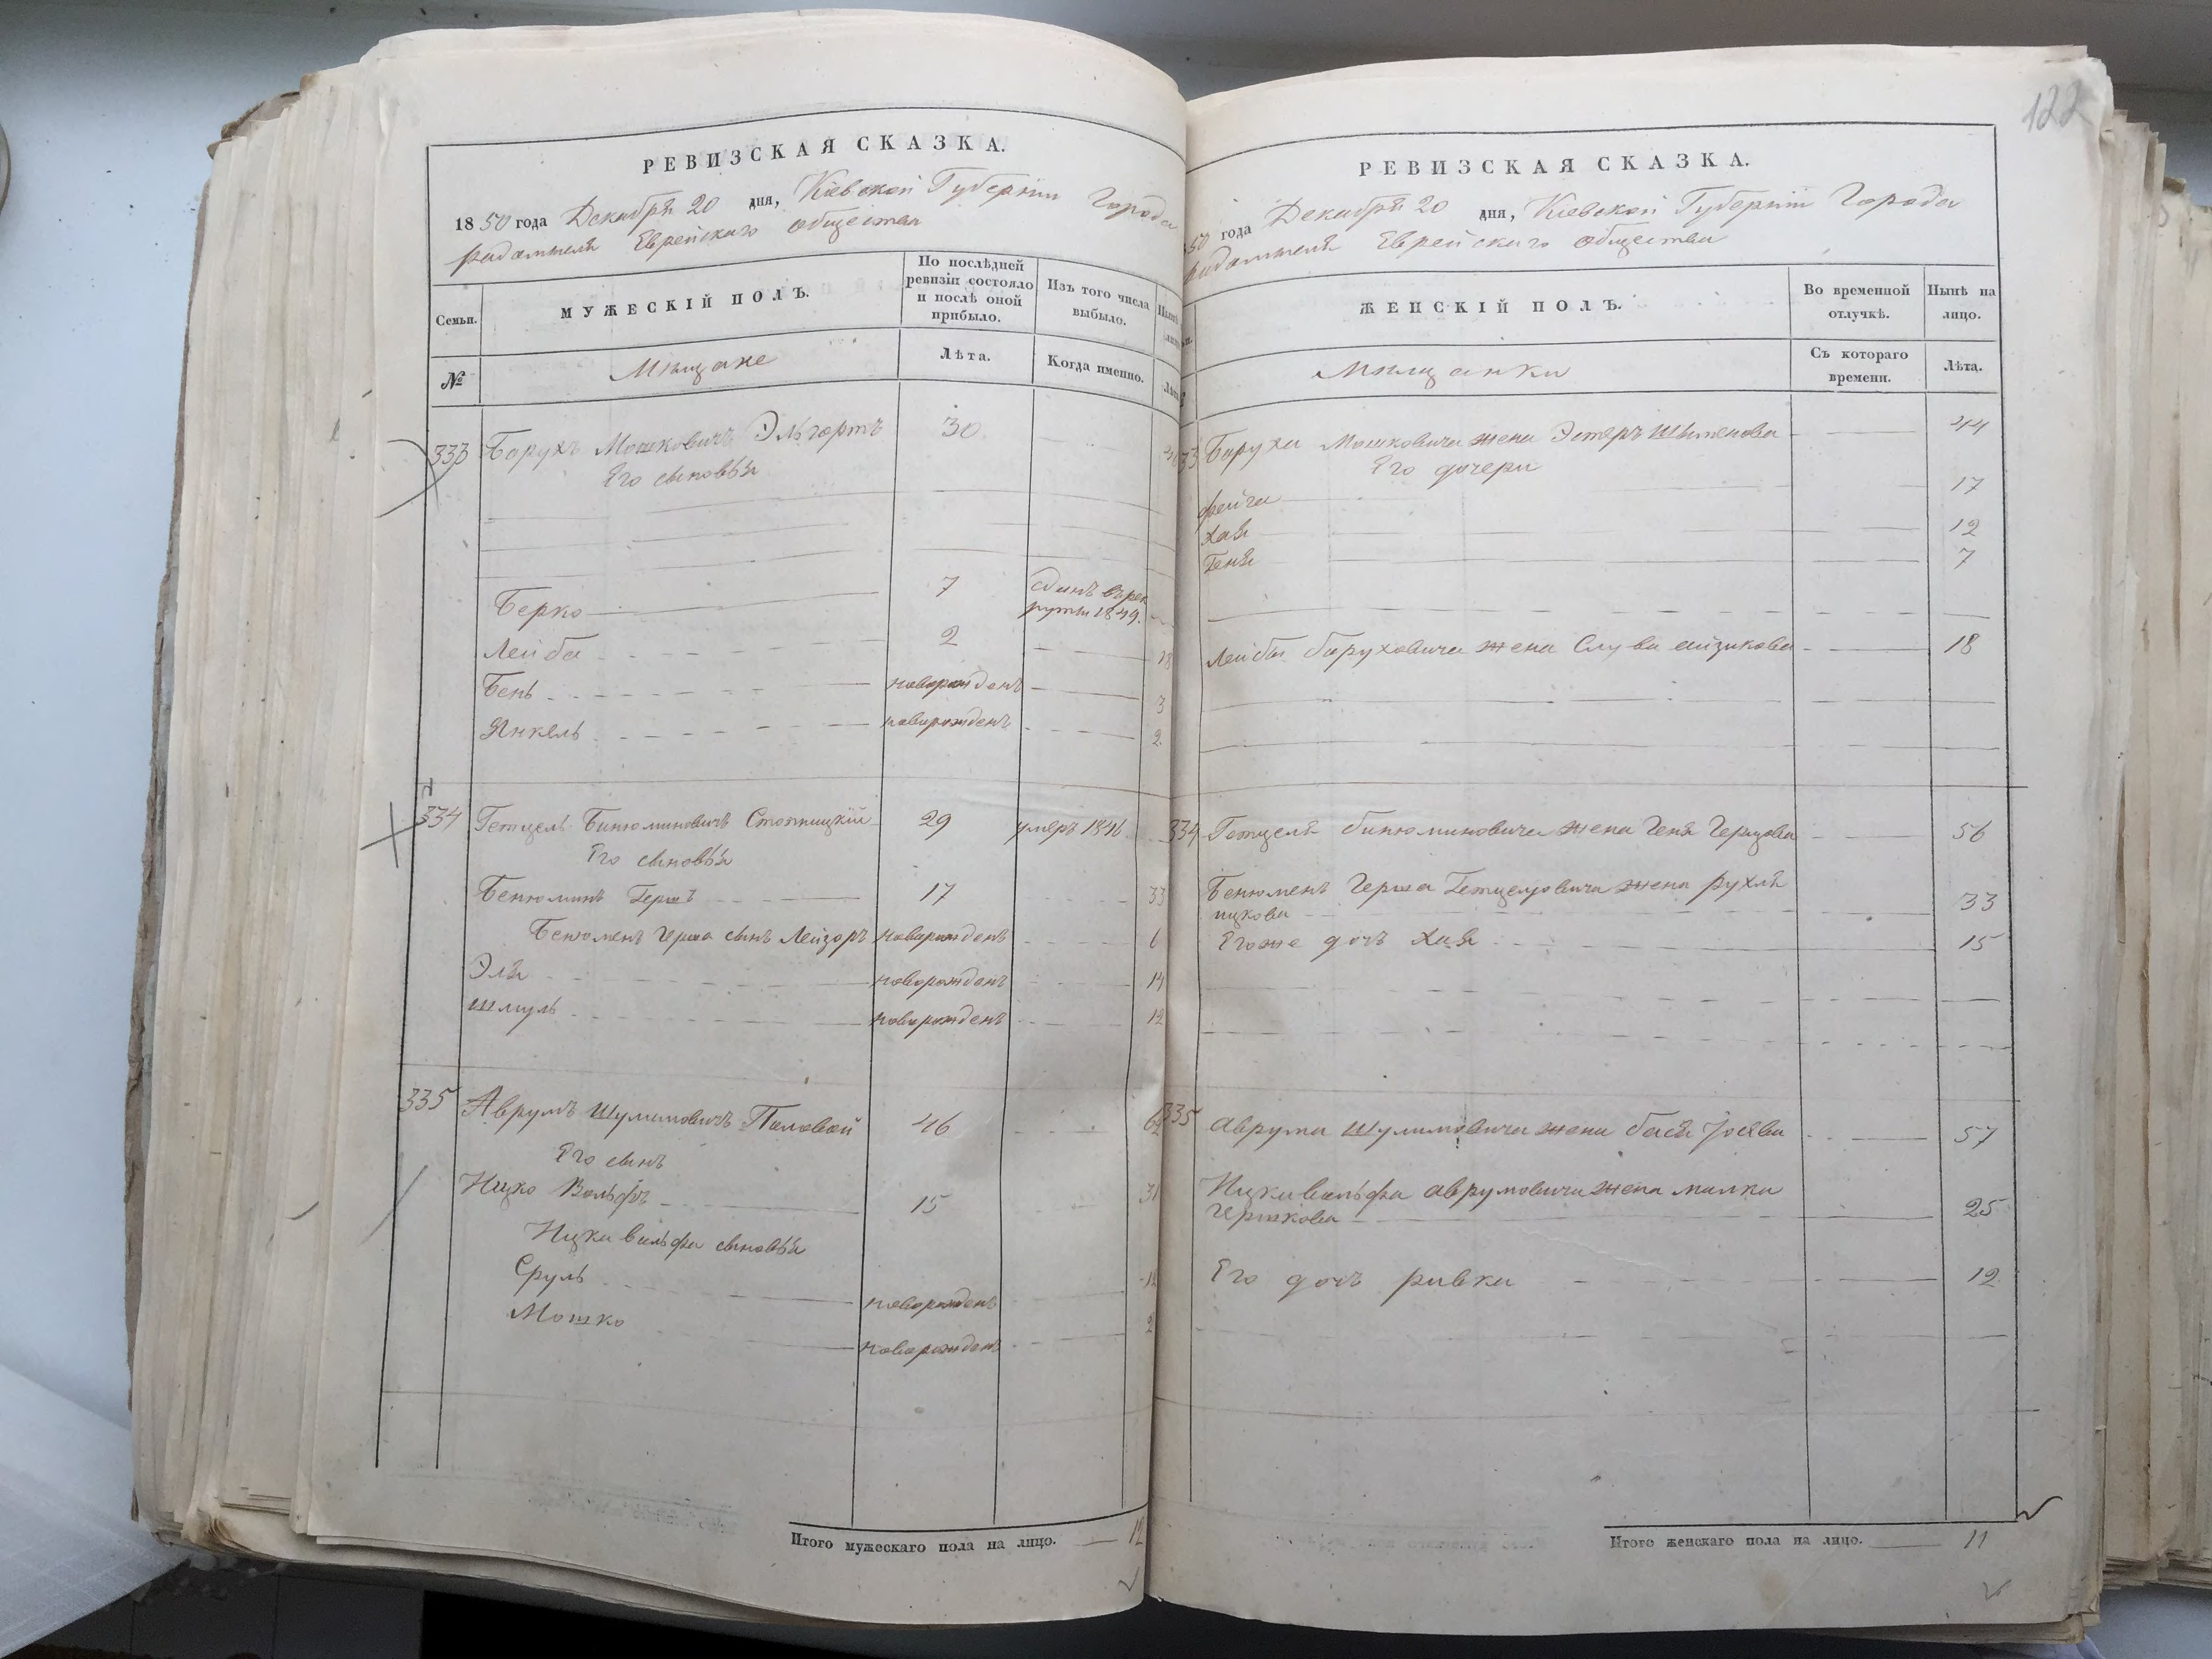 РЕВИЗСКАЯ СКАЗКА.
1850 года Декабря 20 дня, Кіевской Губерніи Города
Радомысля Еврейскаго общества
Семьи.
МУЖЕСКІЙ ПОЛЪ.
По послѣдней
ревизіи состояло
и послѣ оной
прибыло.
Изъ того числа
выбыло.
№
Мѣщане
Лѣта.
Когда именно.
333 Барухъ Мошковичъ Эльгортъ 30
Его сыновья
Берко 7 сданъ въ рек
руты 1849.
Лейба 2 18
Бень новорожденъ 3
Янкель новорожденъ 2
334 Гетцель Бинюминовичъ Стопницкій 29 умеръ 1846
Его сыновья
Бенюминъ Гершъ 17 33
Бенюменъ Герша сынъ Лейзоръ новорожденъ
Эля новорожденъ 14
Шмуль новорожденъ 12
335 Аврумъ Шулимовичъ Половой 46 62
Его сынъ
Ицко Вольфъ 15 31
Ицка Вольфа сыновья
Сруль новорожденъ 12
Мошко новорожденъ 2
Итого мужескаго пола на лицо. 12
122
РЕВИЗСКАЯ СКАЗКА.
50 года Декабря 20 дня, Кіевской Губерніи Города
Радомысля Еврейскаго общества
ЖЕНСКІЙ ПОЛЪ.
Во временной
отлучкѣ.
Нынѣ на
лицо.
Мѣщанки
Съ котораго
времени.
Лѣта.
33 Баруха Мошковича жена Эстеръ 44
Его дочери
Фейга 17
Хая 12
Геня 7
Лейбы Баруховича жена Слува Айзикова 18
334 Гетцеля Бинюминовича жена Геня Герцова 56
Бенюменъ Герша Гетцелровича жена Рухля
Ицкова 33
Его же дочь Хая 15
335 Аврума Шулимовича жена Бася 57
Ицка Вольфа Аврумовича жена Малка
Гершкова 25
Его дочь Ривка 12
Итого женскаго пола на лицо. 11